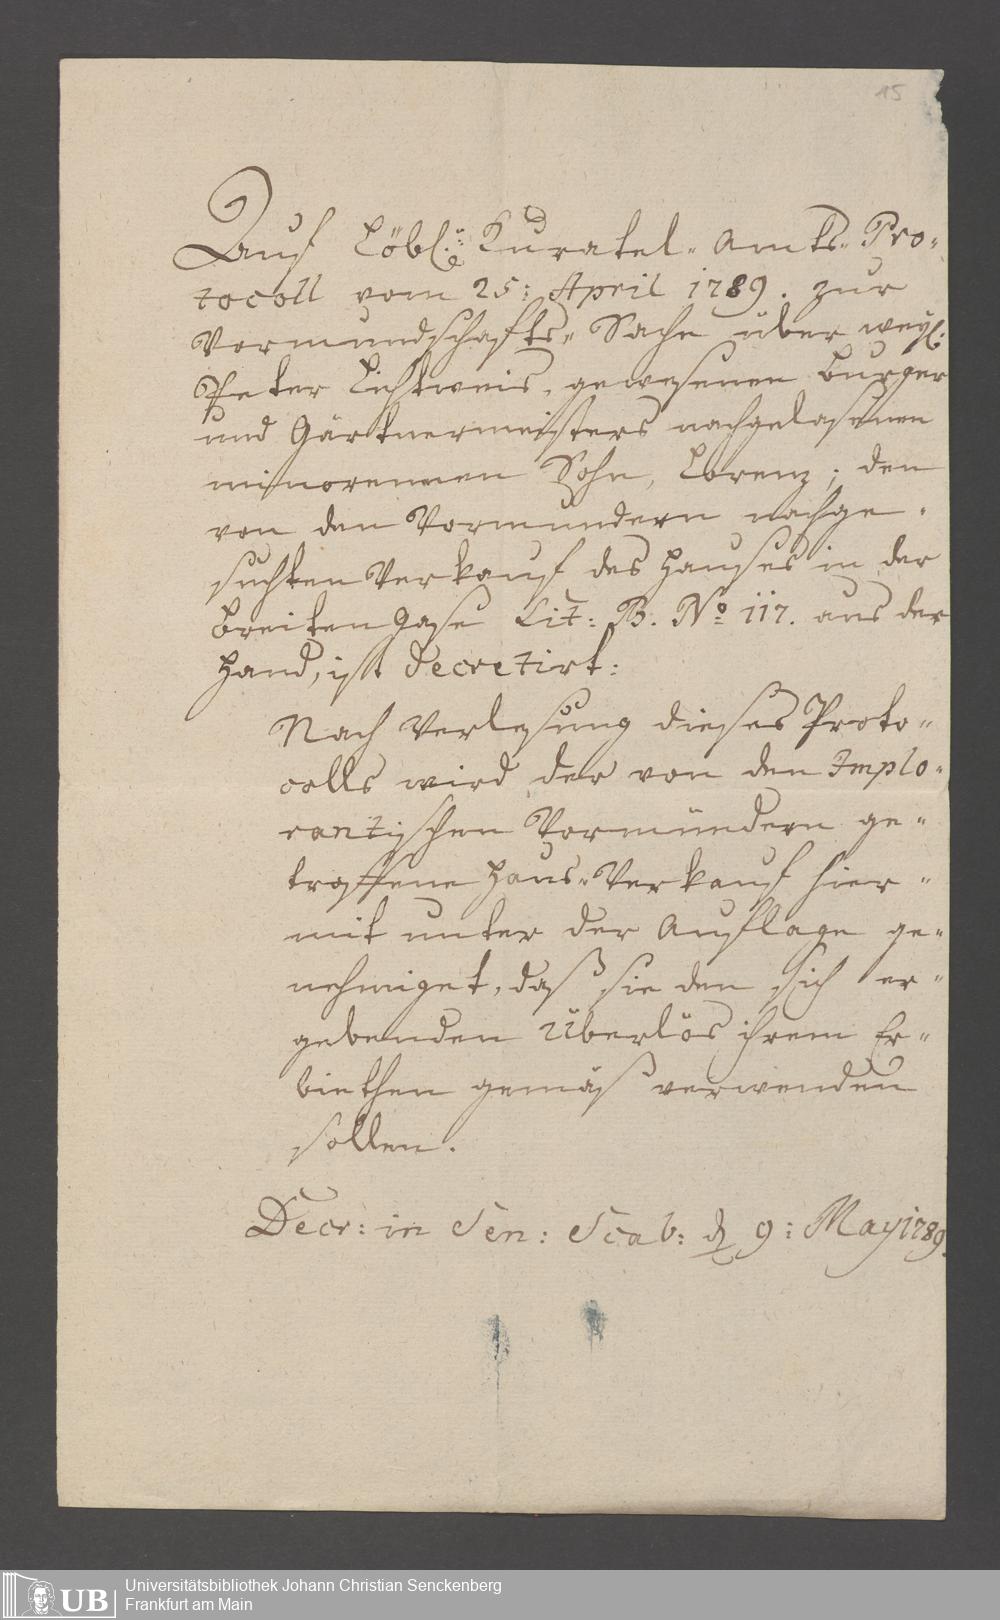 15
Auf Löbl: Kuratel-Amts-Pro-
tocoll vom 25: April 1789. zur
Vormundschafts-Sache über weyl:
Peter Lichtweis, gewesenen Burger
und Gärtnermeisters nachgelaßenen
minorennen Sohn, Lorenz; den
von den Vormundern nachge-
suchten Verkauf des Haußes in der
breiten Gaße Lit: B. No 117. aus der
Hand, ist decretirt:
Nach Verlesung dieses Proto-
colls wird der von den Implo-
rantischen Vormündern ge-
troffene Haus-Verkauf hier-
mit unter der Auflage ge-
nehmiget, daß sie den sich er-
gebenden Überlös ihrem Er-
biethen gemäß verwenden
sollen.
Decr: in Sen: Scab: d 9: May 1789.
UB
Universitätsbibliothek Johann Christian Senckenberg
Frankfurt am Main